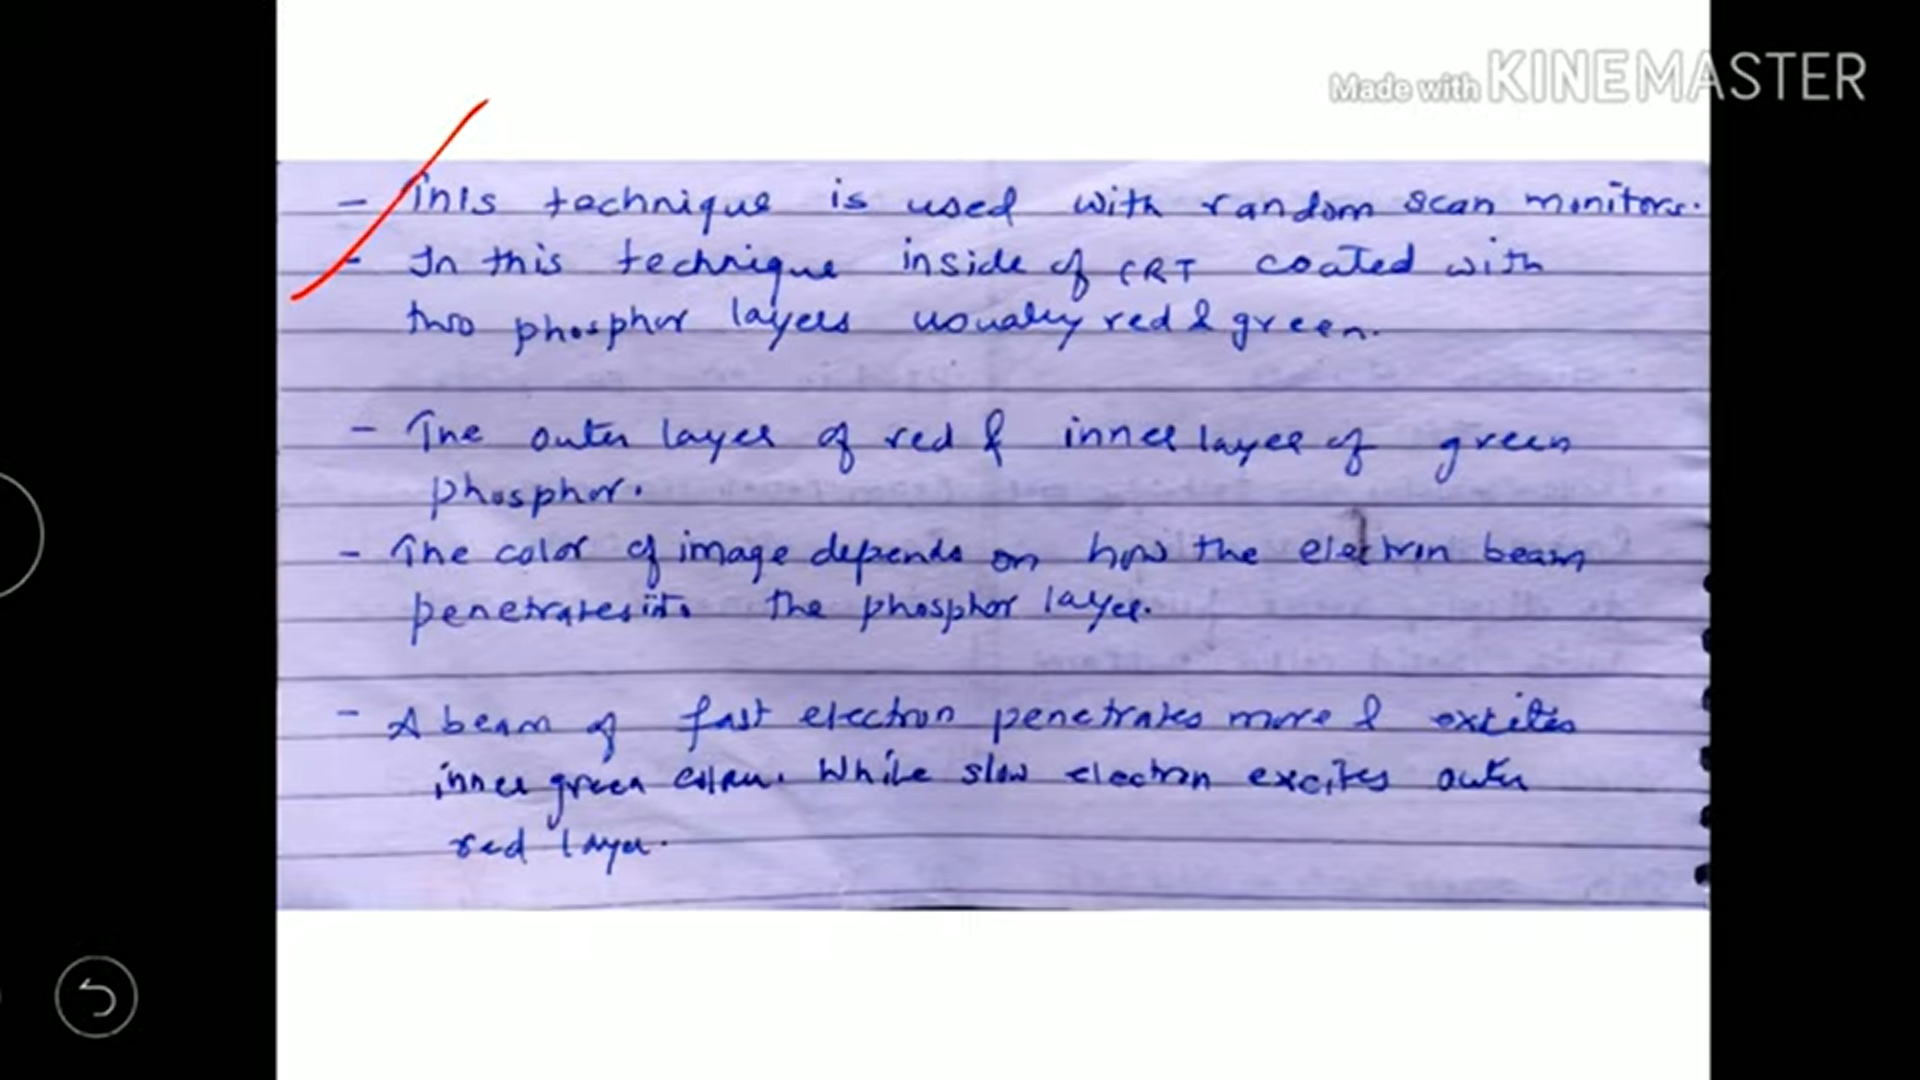 Made with KINEMASTER
- This technique is used with random scan monitors.
- In this technique inside of CRT coated with
two phosphor layers usually red & green.
- The outer layer of red & inner layer of green
phosphor.
- The color of image depends on how the electron beam
penetrates into the phosphor layer.
- A beam of fast electron penetrates more & excites
inner green colour. While slow electron excites outer
red layer.